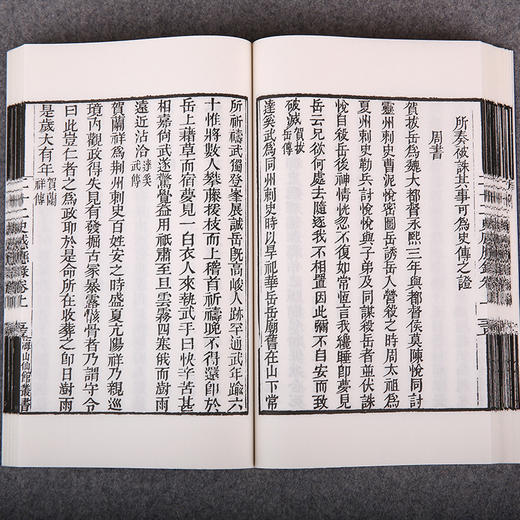 所奏被誅其事可為史傳之證
周書
賀拔岳為魏大都督永熙三年與都督侯莫陳悅同討
靈州刺史曹泥悅密圖岳誘岳入營殺之時周太祖為
夏州刺史勒兵討悅悅與子弟及同謀殺岳者並伏誅
悅自殺岳後神情恍忽不復如常恆言我纔睡即夢見
岳云兄欲何處去隨逐我不相置因此彌不自安而致
破滅賀拔岳傳
達奚武為同州刺史時以旱祀華岳岳廟舊在山下常
所祈禱武獨登峯展誠岳既高峻人跡罕通武年踰六
十惟將數人攀藤援枝而上稽首祈禱晚不得還即於
岳上藉草而宿夢見一白衣人來執武手曰快辛苦甚
相嘉尚武遂驚覺益用祗肅至旦雲霧四塞俄而澍雨
遠近沾洽達奚武傳
賀蘭祥為荆州刺史百姓安之時盛夏亢陽祥乃親巡
境內觀政得失見有發掘古冢暴露骸骨者乃謂守令
曰此豈仁者之為政耶於是命所在收葬之即日澍雨
是歲大有年賀蘭祥傳
海山仙館叢書